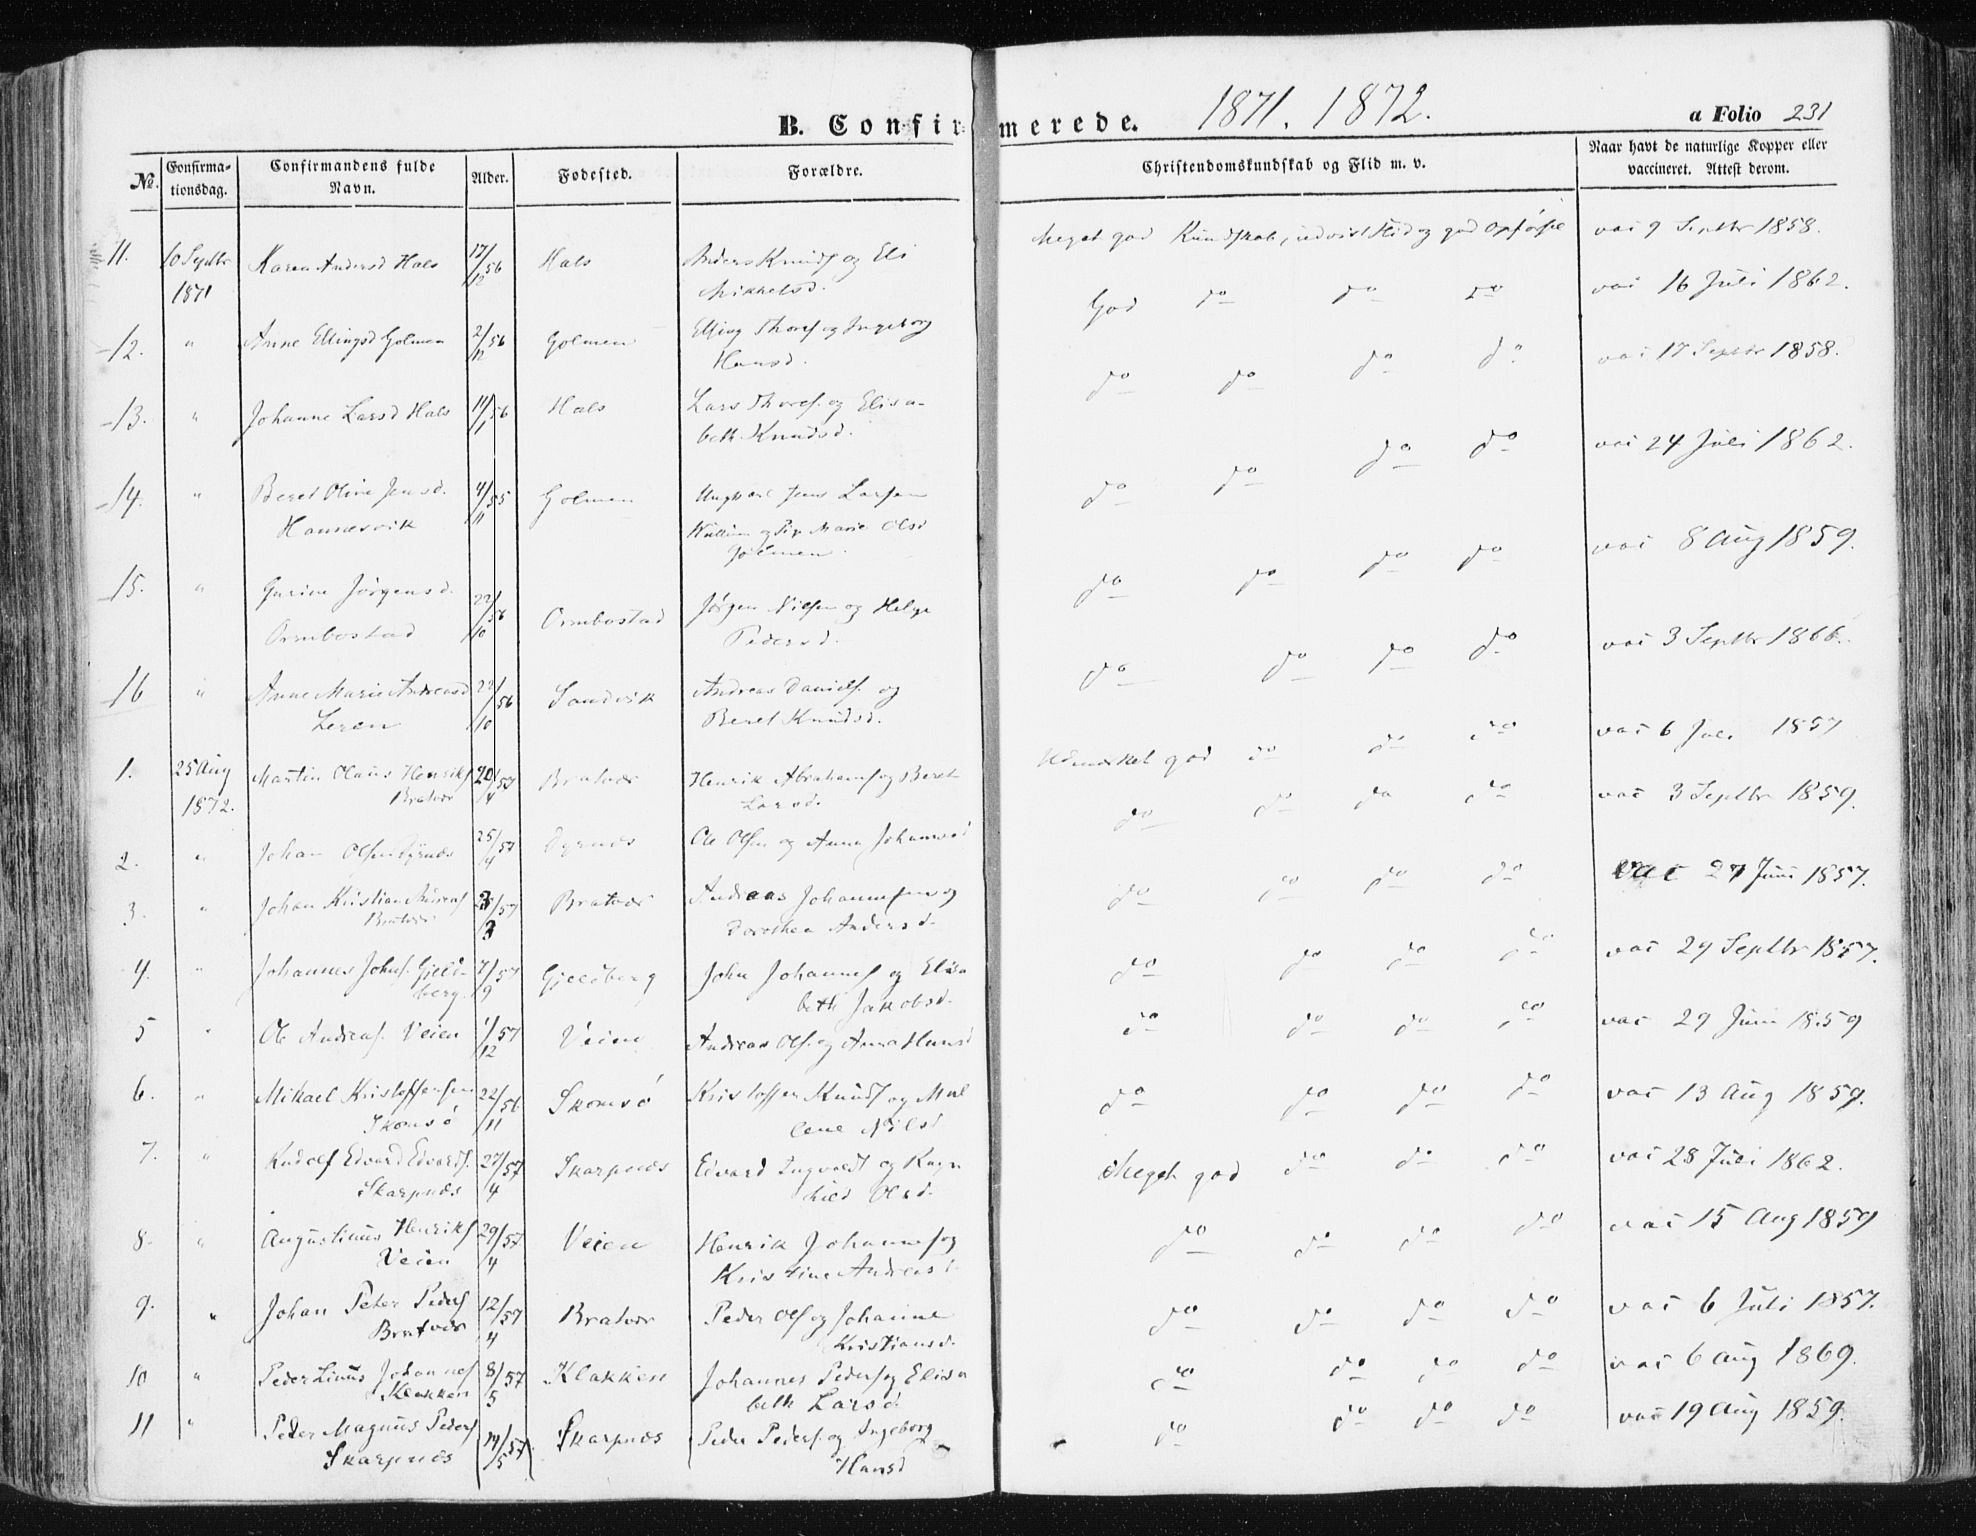 B. Confirmerede. 1871. 1872. a Folio 231
No. Confirma-tionsdag. Confirmandens fulde Navn. Alder. Fødested. Forældre. Christendomskundskab og Flid m. v. Naar havt de naturlige Kopper eller vaccineret. Attest derom.
11. 10 Septbr 1871 Karen Andersd Hals 17/12 56 Hals Anders Knuds og Eli Mikkelsd. Meget god Kundskab, udvist Flid og god Opførsel vac 9 Septbr 1858.
12. " Anne Ellingsd Golmen 2/12 56 Golmen Elling Thores og Ingeborg Hansd. God do do do vac 16 Juli 1862.
13. " Johanne Larsd Hals 11/1 56 Hals Lars Thores. og Elisabeth Knudsd. do do do do vac 17 Septbr 1858.
14. " Beret Oline Jensd. 4/11 55 Golmen Ungkarl Jens Larsen og Pige Marie Olsd Golmen. do do do do vac 24 Juli 1862.
15. " Gurine Jørgensd. Ormbostad 22/10 56 Ormbostad Jørgen Nilsen og Helge Pedersd. do do do do vac 8 Aug 1859.
16 " Anne Marie Andreasd Leren 22/10 56 Sandvik Andreas Daniels. og Beret Knudsd. do do do do vac 3 Septbr 1866.
1. 25 Aug 1872. Martin Olaus Henriks Bratvær 20/4 57 Bratvær Henrik Abrahams og Beret Larsd. Udmærket god do do do vac 6 Juli 1857
2. " Johan Olsen Dyrnæs 25/4 57 Dyrnæs Ole Olsen og Anne Johannesd do do do do vac 3 Septbr 1859.
3. " Johan Kristian Andreas Bratvær 57 Bratvær Andreas Johannesen og Dorothea Andersd. do do do do vac 27 Juni 1857.
4. " Johannes Johns. Gjeldberg. 7/9 57 Gjeldberg John Johannes og Elisabeth Jakobsd. do do do do vac 29 Septbr 1857.
5 " Ole Andreas. Veien 1/12 57 Veien Andreas Ols. og Anna Hansd do do do do vac 29 Juni 1859
6. " Mikael Kristoffersen Skomsø 22/11 56 Skomsø Kristoffer Knuds og Malene Nilsd do do do do vac 13 Aug 1859.
7. " Rudolf Edvard Edvards. Skarpnæs 27/4 57 Skarpnæs Edvard Ingvalds og Ragnhild Olsd. Meget god do do do vac 28 Juli 1862.
8. " Augustinus Henriks Veien 29/4 57 Veien Henrik Johannes og Kristine Andreasd. do do do do vac 15 Aug 1859
9. " Johan Peter Peders Bratvær 12/4 57 Bratvær Peder Ols og Johanne Kristiansd. do do do do vac 6 Juli 1857.
10 " Peder Linus Johannes Klakken 8/5 57 Klakken Johannes Peders og Elisabeth Larsd do do do do vac 6 Aug 1869.
11 " Peder Magnus Peders Skarpnæs 14/5 57. Skarpnæs Peder Peders. og Ingeborg Hansd do do do do vac 19 Aug 1859.